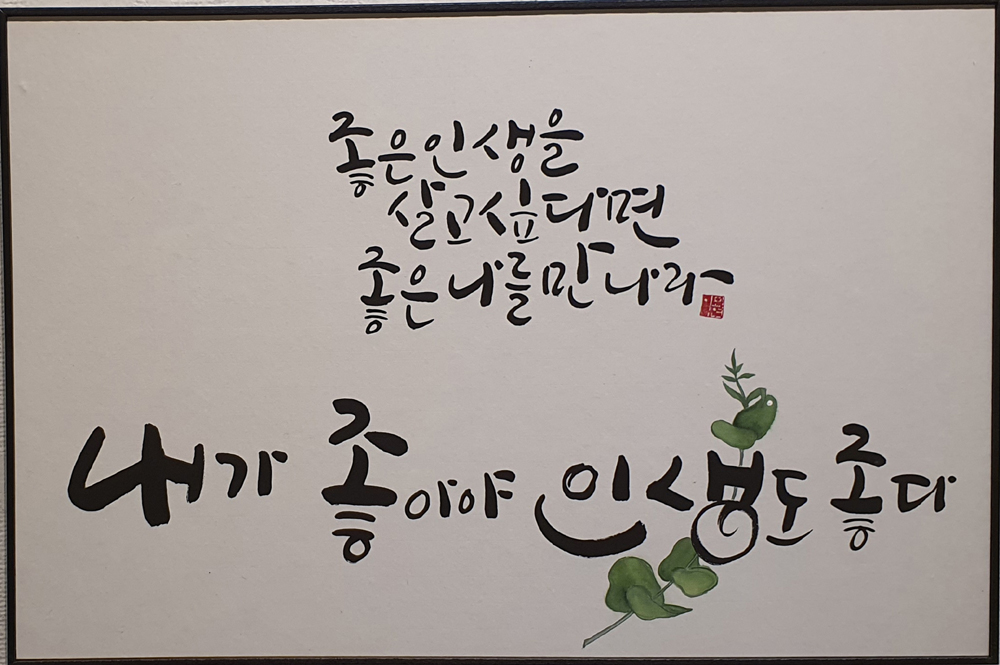 좋은인생을
살고싶다면
좋은나를만나라
내가 좋아야 인생도 좋다